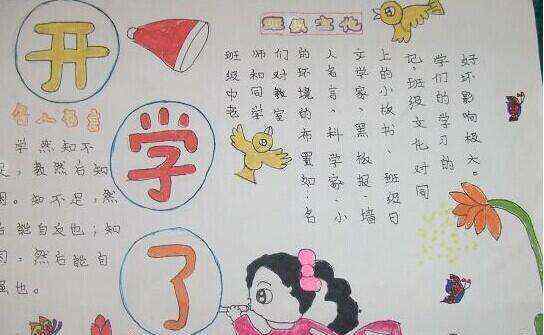 开
学
了
名人名言
学然知不
足，教然后知
困。知不足，然
后能自反也；知
困，然后能自
强也。
班级文化
班级中老
师和同学
们对教室
的环境的布置如:名
人名言、科学家、小
文学家、黑板报、墙
上的小板书、班级日
记.班级文化对同
学们的学习的
好坏影响极大。